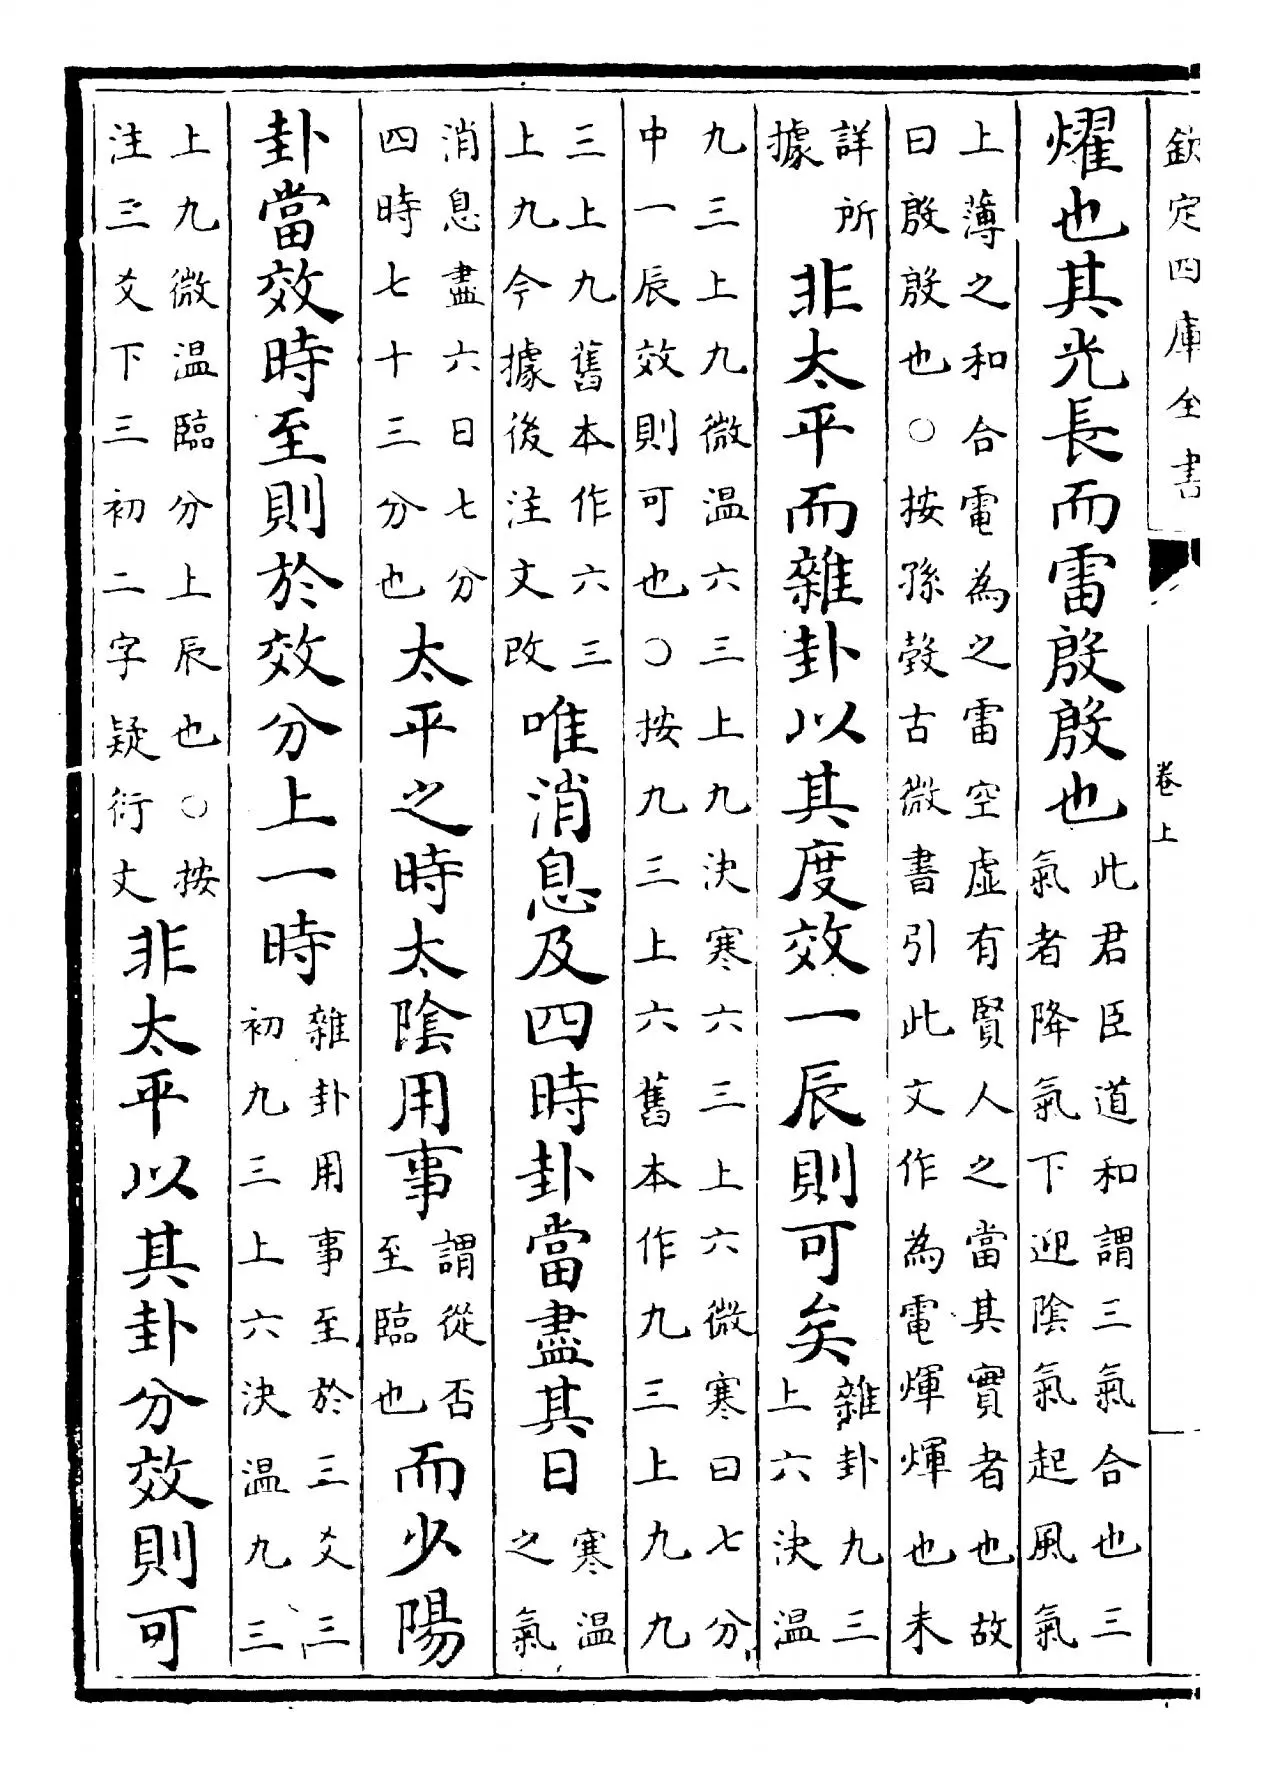 欽定四庫全書
卷上
燿也其光長而雷殷殷也
此君臣道和謂三氣合也三
氣者降氣下迎陰氣起風氣
上薄之和合電為之雷空虛有賢人之當其實者也故
曰殷殷也○按孫瑴古微書引此文作為電煇煇也未
詳所
據
非太平而雜卦以其度效一辰則可矣
雜卦九三
上六決温
九三上九微温六三上九決寒六三上六微寒曰七分
中一辰效則可也○按九三上六舊本作九三上九九
三上九舊本作六三
上九今據後注文改
唯消息及四時卦當盡其日
寒温
之氣
消息盡六日七分
四時七十三分也
太平之時太陰用事
謂從否
至臨也
而少陽
卦當效時至則於效分上一時
雜卦用事至於三爻三
初九三上六決温九三
上九微温臨分上辰也○按
注三爻下三初二字疑衍文
非太平以其卦分效則可